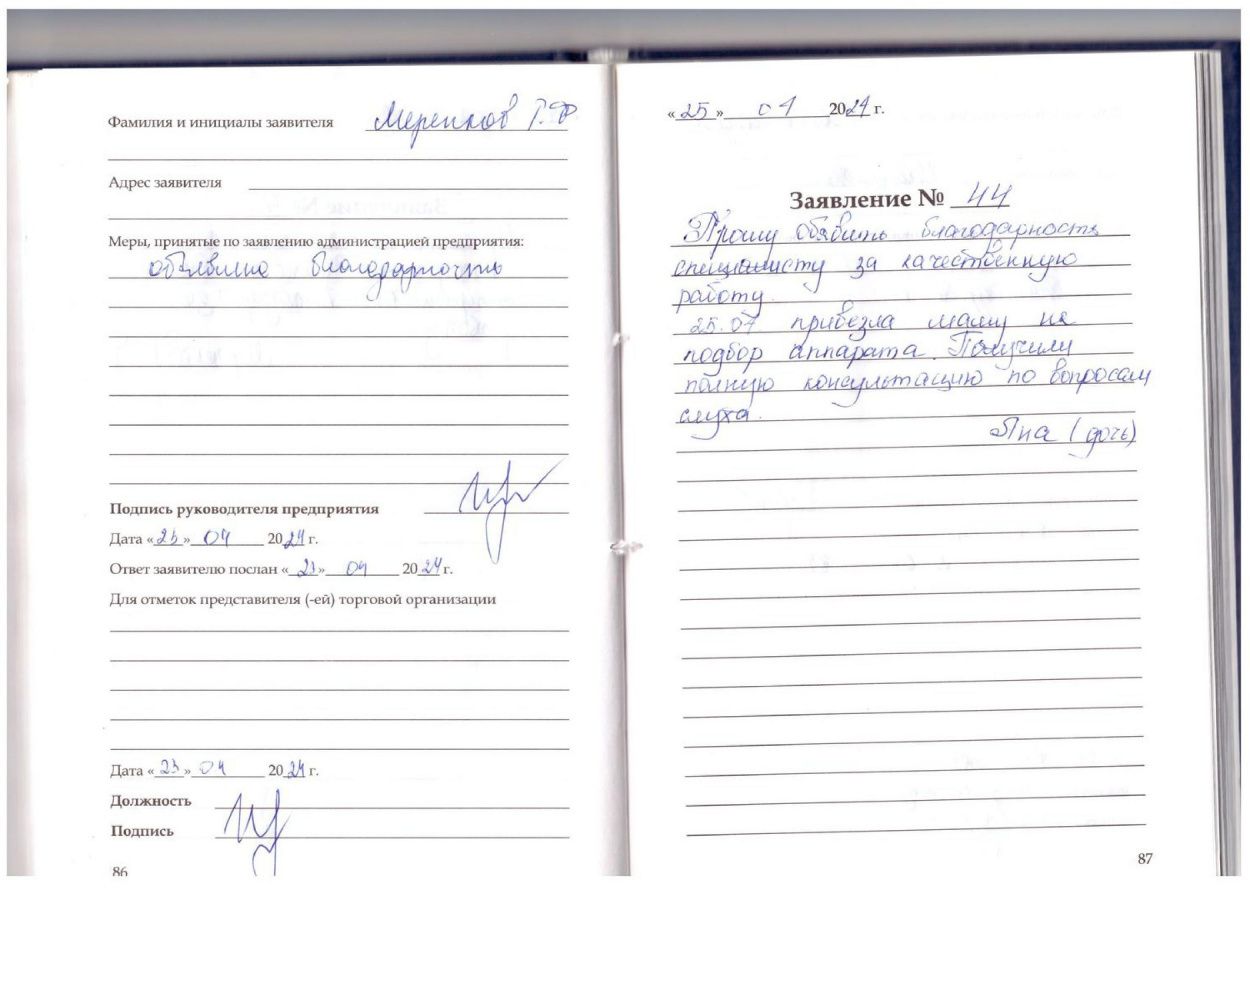 Фамилия и инициалы заявителя Меренков Г.Ф
Адрес заявителя
Меры, принятые по заявлению администрацией предприятия:
объявлена благодарность
Подпись руководителя предприятия
Дата «23» 04 2024 г.
Ответ заявителю послан «23» 04 2024 г.
Для отметок представителя (-ей) торговой организации
Дата «23» 04 2024 г.
Должность
Подпись
86
«25» 2024 г.
Заявление № 44
Прошу объявить благодарность
специалисту за качественную
работу.
25.07 привезла маму на
подбор аппарата. Получили
полную консультацию по вопросам
слуха.
Яна (дочь)
87